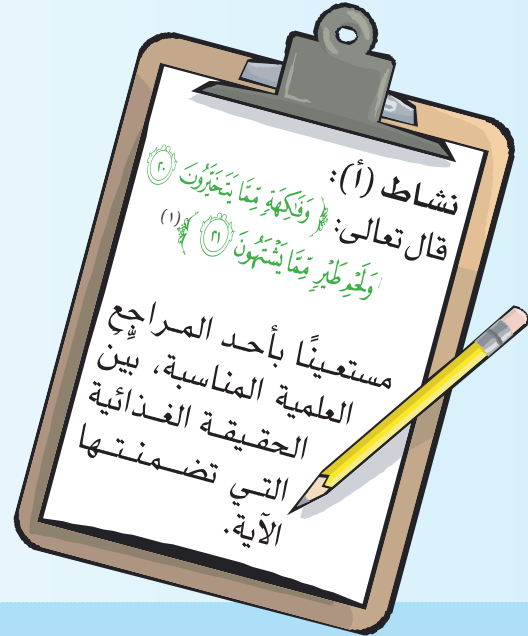 نشاط (أ):
قال تعالى: ﴿ وَفَٰكِهَةٍ مِّمَّا يَتَخَيَّرُونَ ۝٢٠
وَلَحْمِ طَيْرٍ مِّمَّا يَشْتَهُونَ ۝٢١ ﴾ (١)
مستعينًا بأحد المراجع
العلمية المناسبة، بين
الحقيقة الغذائية
التي تضمنتها
الآية.